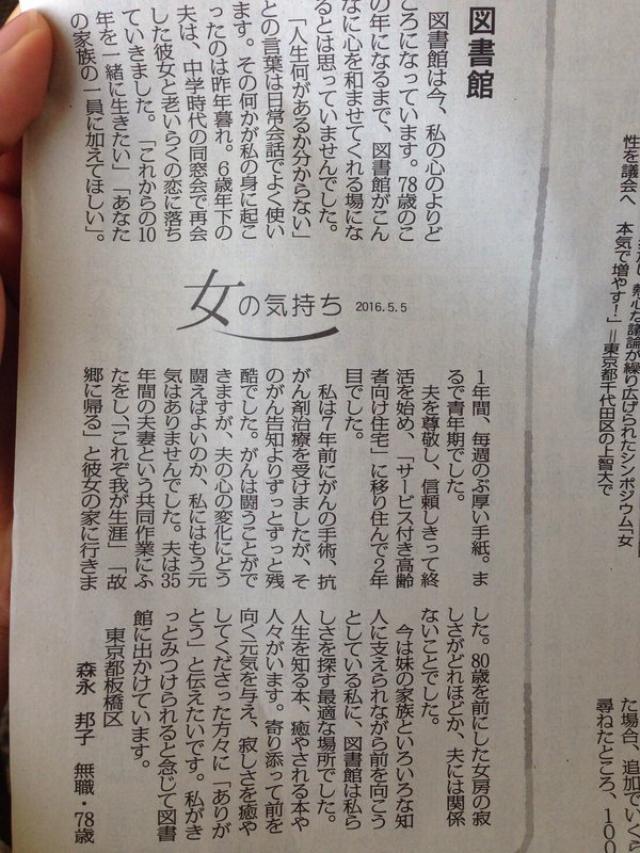 図書館
図書館は今、私の心のよりど
ころになっています。78歳のこ
の年になるまで、図書館がこん
なに心を和ませてくれる場にな
るとは思っていませんでした。
「人生何があるか分からない」
との言葉は日常会話でよく使い
ます。その何かが私の身に起こ
ったのは昨年暮れ。6歳年下の
夫は、中学時代の同窓会で再会
した彼女と老いらくの恋に落ち
ていきました。「これからの10
年を一緒に生きたい」「あなた
の家族の一員に加えてほしい」。
女の気持ち 2016.5.5
1年間、毎週のぶ厚い手紙。ま
るで青年期でした。
夫を尊敬し、信頼しきって終
活を始め、「サービス付き高齢
者向け住宅」に移り住んで2年
目でした。
私は7年前にがんの手術、抗
がん剤治療を受けましたが、そ
のがん告知よりずっとずっと残
酷でした。がんは闘うことがで
きますが、夫の心の変化にどう
闘えばよいのか、私にはもう元
気はありませんでした。夫は35
年間の夫妻という共同作業にふ
たをし、「これぞ我が生涯」「故
郷に帰る」と彼女の家に行きま
した。80歳を前にした女房の寂
しさがどれほどか、夫には関係
ないことでした。
今は妹の家族といろいろな知
人に支えられながら前を向こう
としている私に、図書館は私ら
しさを探す最適な場所でした。
人生を知る本、癒やされる本や
人々がいます。寄り添って前を
向く元気を与え、寂しさを癒や
してくださった方々に「ありが
とう」と伝えたいです。私がき
っとみつけられると念じて図書
館に出かけています。
東京都板橋区
森永 邦子 無職・78歳
性を議会へ 本気で増やす!」=東京都千代田区の上智大で
熱心な議論が繰り広げられたシンポジウム「女
た場合、追加でいくら
尋ねたところ、100